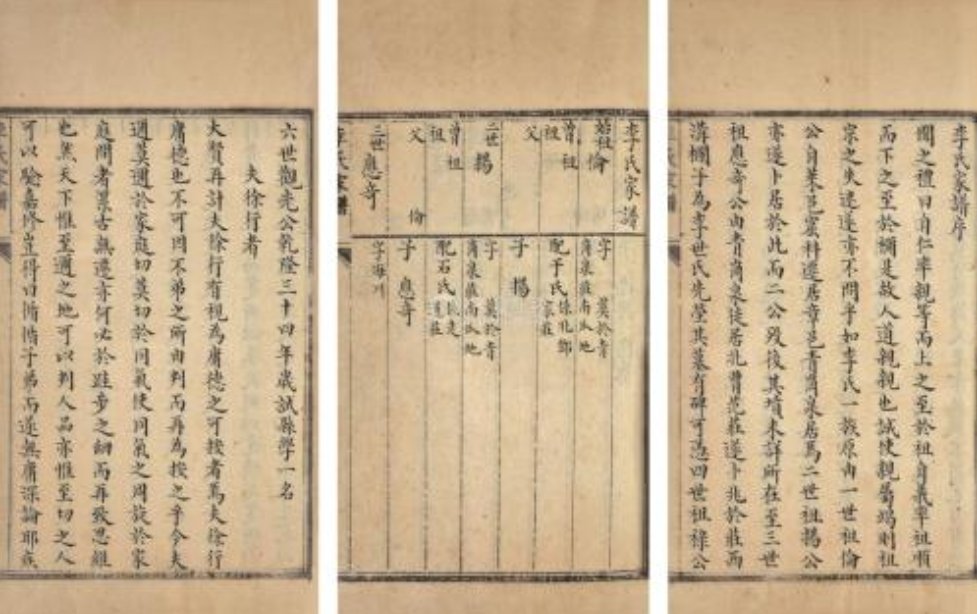 李氏家譜序
聞之禮曰自仁率親等而上之至於祖自義率祖順
而下之至於禰是故人道親親也誠使親屬竭則祖
宗之失迷遂亦不問乎如李氏一族原由一世祖倫
公自萊邑窩科遷居章邑青崗泉居焉二世祖揚公
亦遂卜居於此而二公歿後其墳未詳所在至三世
祖應奇公由青崗泉徙居北曹范莊遂卜兆於莊西
溝欄子為李世氏先塋其墓有碑可憑四世祖祿公
李氏家譜
李氏家譜
始祖倫
曾祖
祖
父
字 葬於青
崗泉莊南瓜地
配于氏係北鄒
家莊
子 揚
二世揚
曾祖
祖
父 倫
字 葬於青
崗泉莊南瓜地
配石氏
莊
子 應奇
三世應奇
字海川
李氏家譜
六世觀光公乾隆三十四年歲試縣學一名
夫徐行者
大賢再計夫徐行有視為庸德之可按者焉夫徐行
庸德也不可因不弟之所由判而再為按之乎今夫
邇莫邇於家庭切莫切於同氣使同氣之周旋於家
庭間者無違亦何必於跬步之細而再致思維
也然天下惟至邇之地可以判人品亦惟至切之人
可以驗嘉修豈得曰循循子弟而遂無庸深論耶疾
李氏家譜